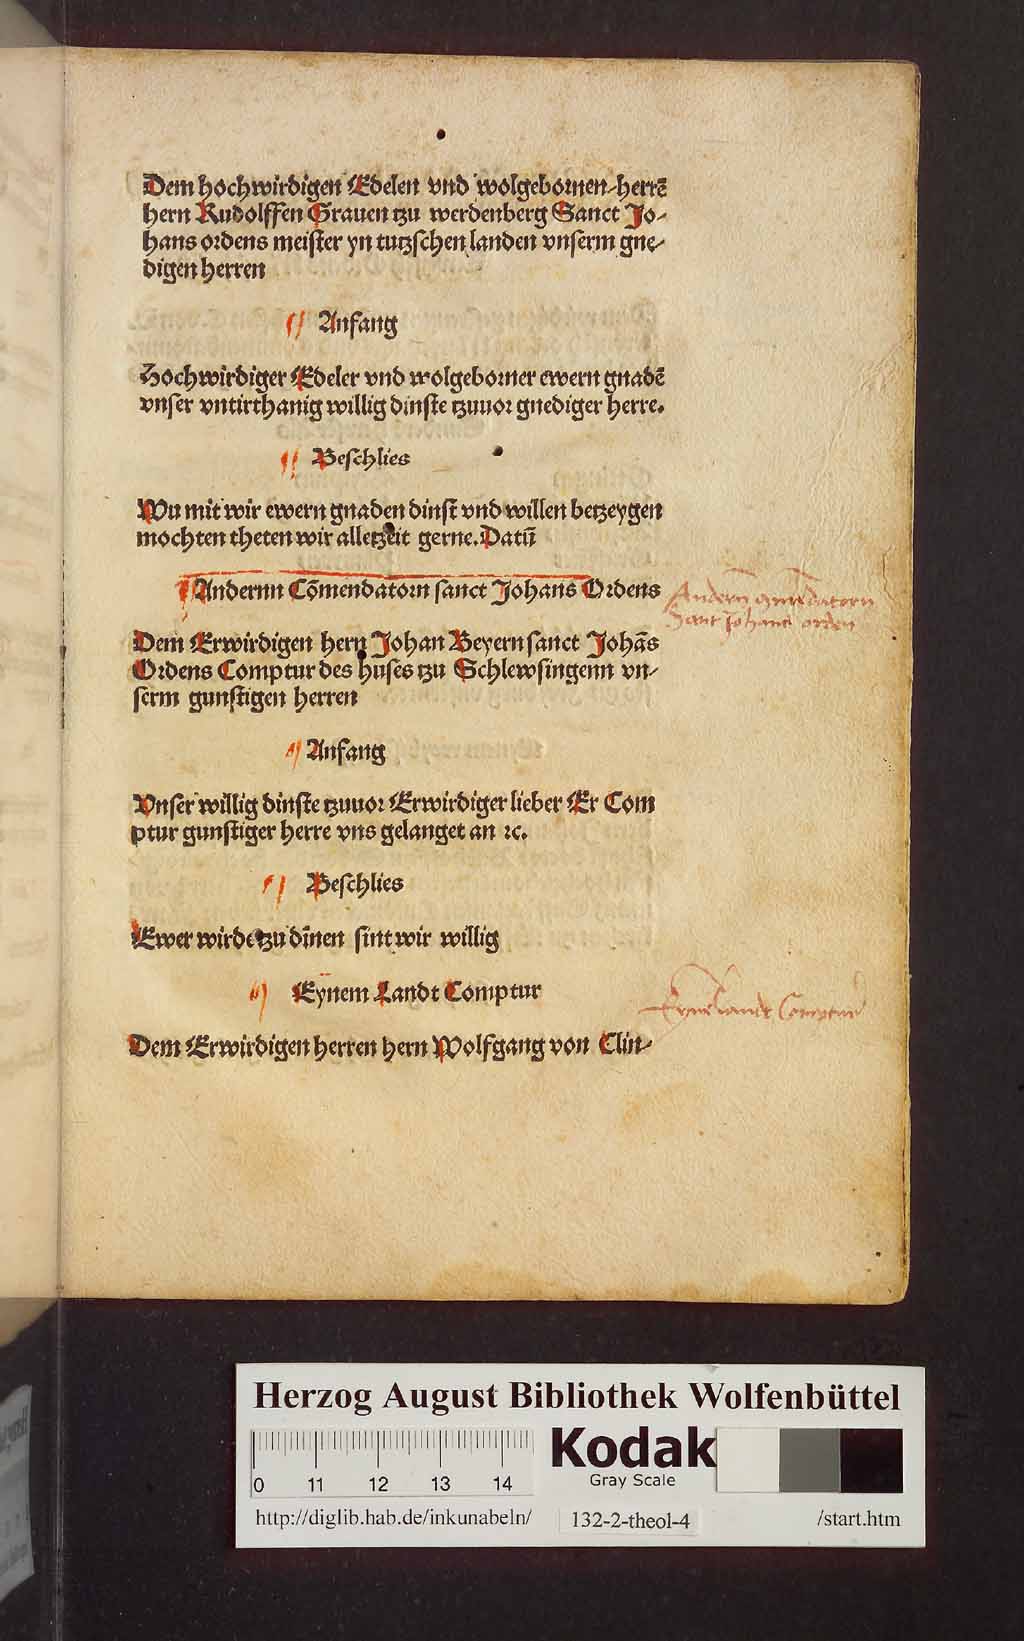 Dem hochwirdigen Edelen vnd wolgebornen herrē
hern Rudolffen Grauen tzu werdenberg Sanct Jo-
hans ordens meister yn tutzschen landen vnserm gne-
digen herren
Anfang
Hochwirdiger Edeler vnd wolgeborner ewern gnadē
vnser vntirthanig willig dinste tzuuor gnediger herre.
Beschlies
Wu mit wir ewern gnaden dinst vnd willen betzeygen
mochten theten wir alletzeit gerne. Datū
Andernn Cōmendatorn sanct Johans Ordens
Andern 9mēdatorn
Sant Johans orden
Dem Erwirdigen hern Johan Beyern sanct Johās
Ordens Comptur des huses tzu Schlewsingenn vn-
serm gunstigen herren
Anfang
Vnser willig dinste tzuuor Erwirdiger lieber Er Com
ptur gunstiger herre vns gelanget an ꝛc.
Beschlies
Ewer wirde tzu dīnen sint wir willig
Eynem Landt Comptur
Eynē landt Comptur
Dem Erwirdigen herren hern Wolfgang von Clin-
Herzog August Bibliothek Wolfenbüttel
0 11 12 13 14
Kodak
Gray Scale
http://diglib.hab.de/inkunabeln/ 132-2-theol-4 /start.htm